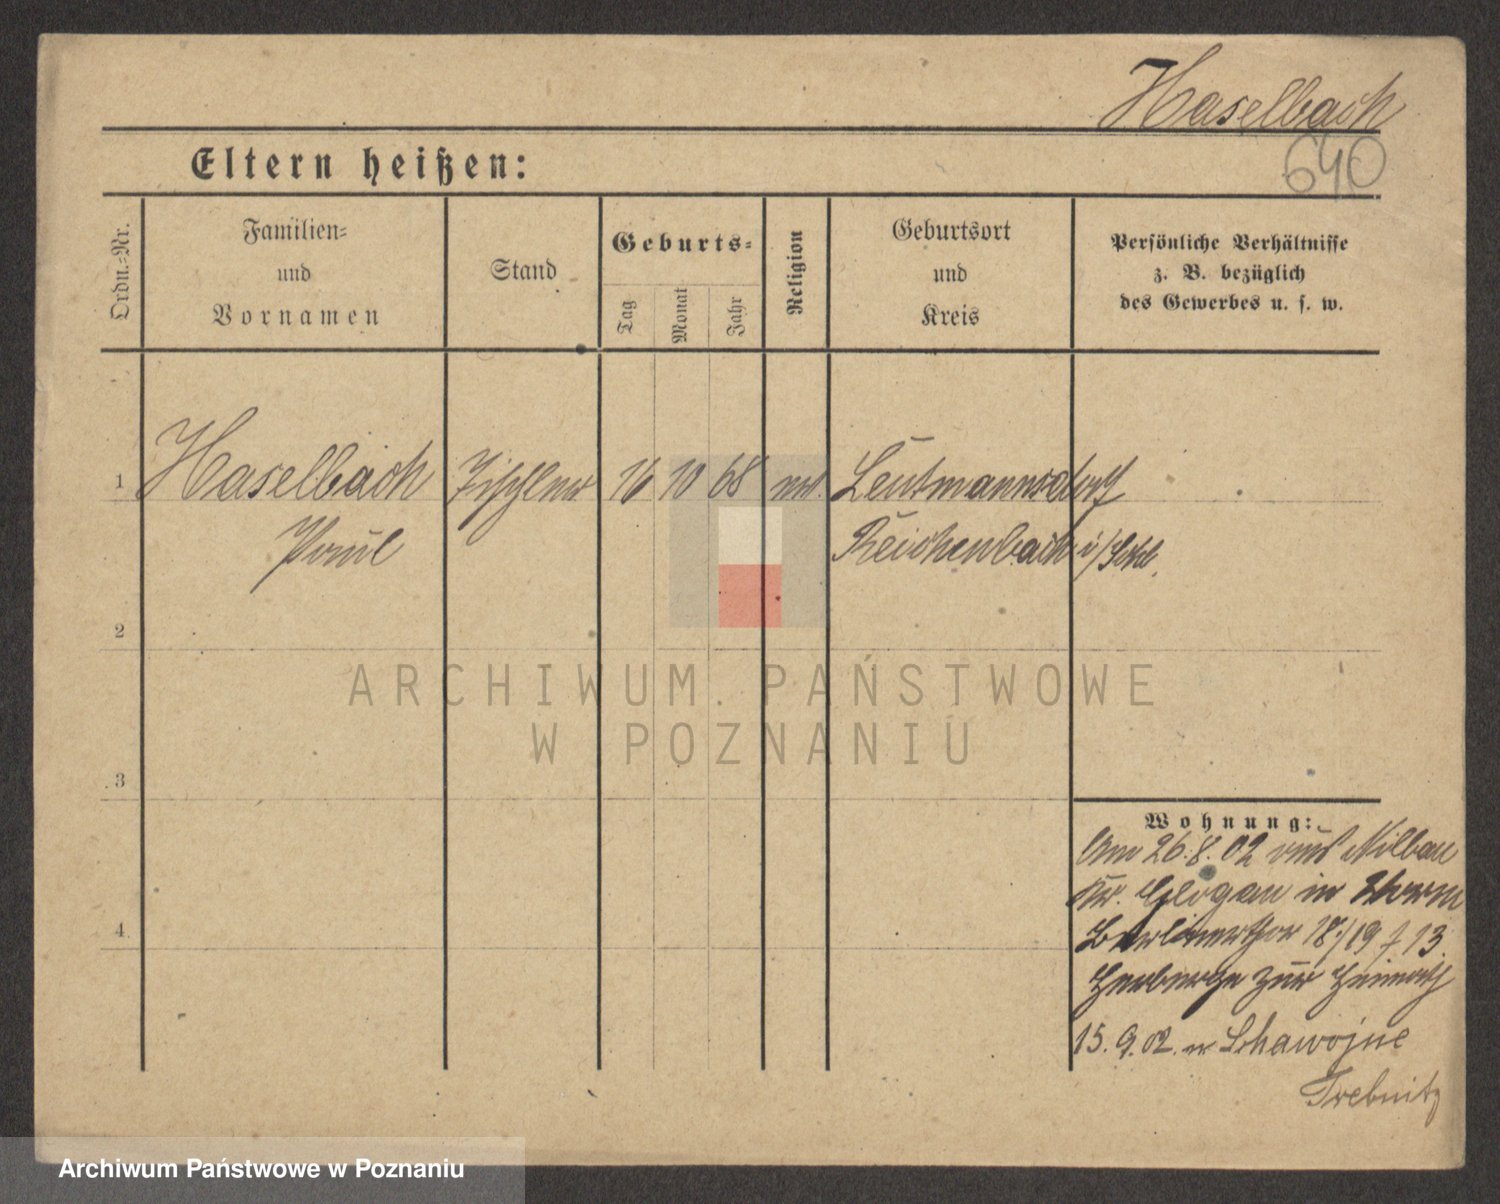 Haselbach
640
Eltern heißen:
Ordn.-Nr.
Familien-
und
Vornamen
Stand
Geburts-
Tag
Monat
Jahr
Religion
Geburtsort
und
Kreis
Persönliche Verhältnisse
z. B. bezüglich
des Gewerbes u. s. w.
1
Haselbach
Tischler
16
10
68
Leutmannsdorf
Paul
Reichenbach i/Schl.
2
ARCHIWUM PAŃSTWOWE
W POZNANIU
3
Wohnung:
Am 26.8.02 aus Nilbau
Kr. Glogau in
Berlinerthor 18/19
Herberge zur Heimath
15.9.02. n Schawojne
4
Trebnitz
Archiwum Państwowe w Poznaniu